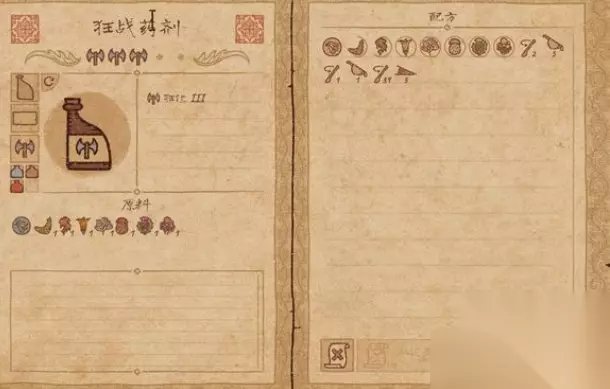 狂战药剂
狂化 III
原料
配方